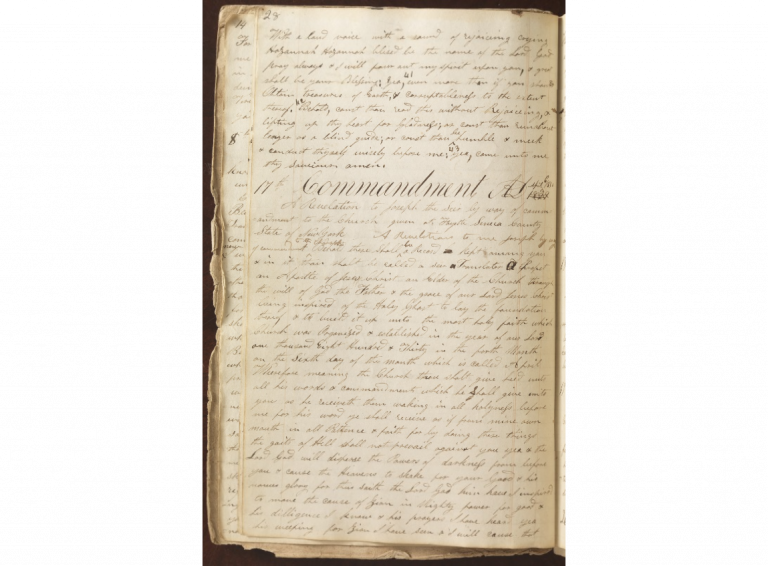 28
With a loud voice with a sound of rejoicing crying
Hozannah Hozannah blesed be the name of the Lord God
pray always & I will pour out my spirit upon you, & great
shall be your blessing, yea, even more than if you should
obtain treasures of Earth, & corruptableness to the extent
thereof. Behold, canst thou read this without Rejoiceing, &
lifting up thy heart for gladness; or canst thou run about
longer as a blind guide; or canst thou be humble & meek
& conduct thyself wisely before me; yea, come unto me
thy saviour amen.
17th Commandment AD 1830
A Revelation to Joseph the Seer by way of comm
andment to the Church given at Fayette Seneca county
State of New York A Revelation to me Joseph by
that there shall be a Record Kept among you
& in it thou shalt be called a seer a Translator a Prophet
an Apostle of Jesus Christ an Elder of the Church through
the will of God the Father & the grace of our Lord Jesus Christ
being inspired of the Holy Ghost to lay the foundation
thereof & to build it up unto the most holy faith which
church was Organized & established in the year of our Lord
one thousand Eight Hundred & Thirty in the forth Month
on the sixth day of the month which is called April
Wherefore meaning the Church thou shalt give heed unto
all his words & commandments which he shall give unto
you as he receiveth them walking in all holyness before
me for his word ye shall receive as if from mine own
mouth in all Patience & faith for by doing these things
the gaits of Hell shall not prevail against you yea & the
Lord God will disperse the Powers of darkness from before
you & cause the Heavens to shake for your Good & his
names glory for thus saith the Lord God him have I inspired
to move the cause of Zion in Mighty power for good &
his dilligence I know & his prayers I have heard yea
his weeping for Zion I have seen & I will cause that